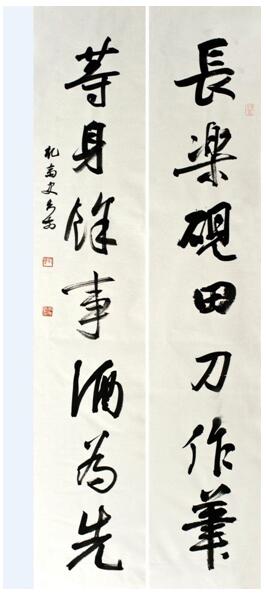 長樂硯田刀作筆
等身餘事酒為先